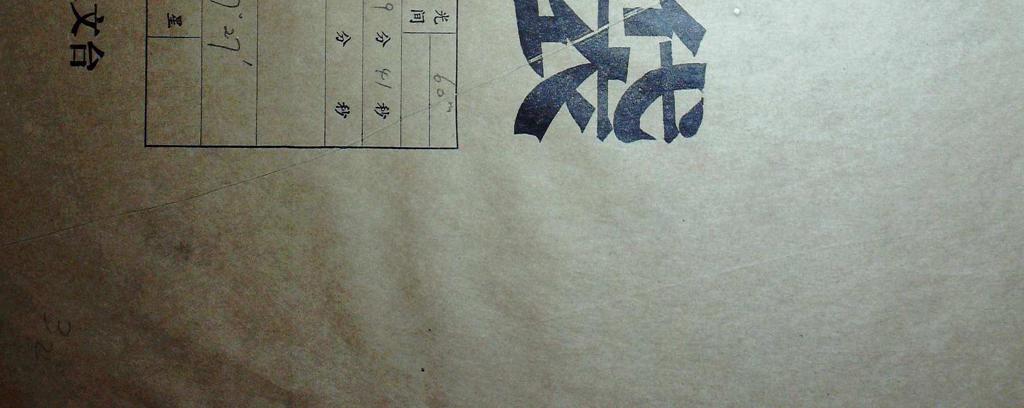 袋
光 60ᵐ
间
9 分 41 秒
分 秒
7° 27′
星
文台
32